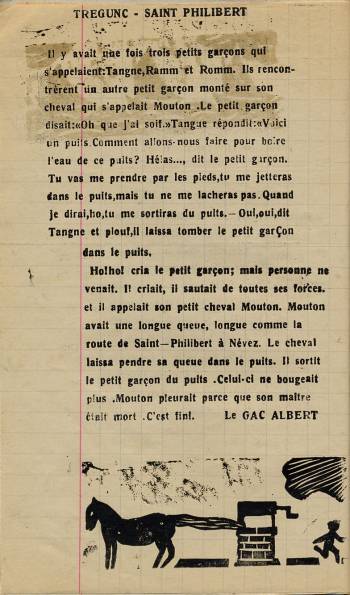 TREGUNC - SAINT PHILIBERT
Il y avait une fois trois petits garçons qui
s'appelaient:Tangne,Ramm et Romm. Ils rencon-
trèrent un autre petit garçon monté sur son
cheval qui s'appelait Mouton .Le petit garçon
disait:«Oh que j'ai soif.»Tangue répondit:«Voici
un puits.Comment allons-nous faire pour boire
l'eau de ce puits? Hélas..., dit le petit garçon.
Tu vas me prendre par les pieds,tu me jetteras
dans le puits,mais tu ne me lacheras pas.Quand
je dirai,ho,tu me sortiras du puits.- Oui,oui,dit
Tangne et plouf,il laissa tomber le petit garçon
dans le puits.
Ho!ho! cria le petit garçon; mais personne ne
venait. Il criait, il sautait de toutes ses forces.
et il appelait son petit cheval Mouton. Mouton
avait une longue queue, longue comme la
route de Saint-Philibert à Névez. Le cheval
laissa pendre sa queue dans le puits. Il sortit
le petit garçon du puits .Celui-ci ne bougeait
plus .Mouton pleurait parce que son maître
était mort .C'est fini. Le GAC ALBERT